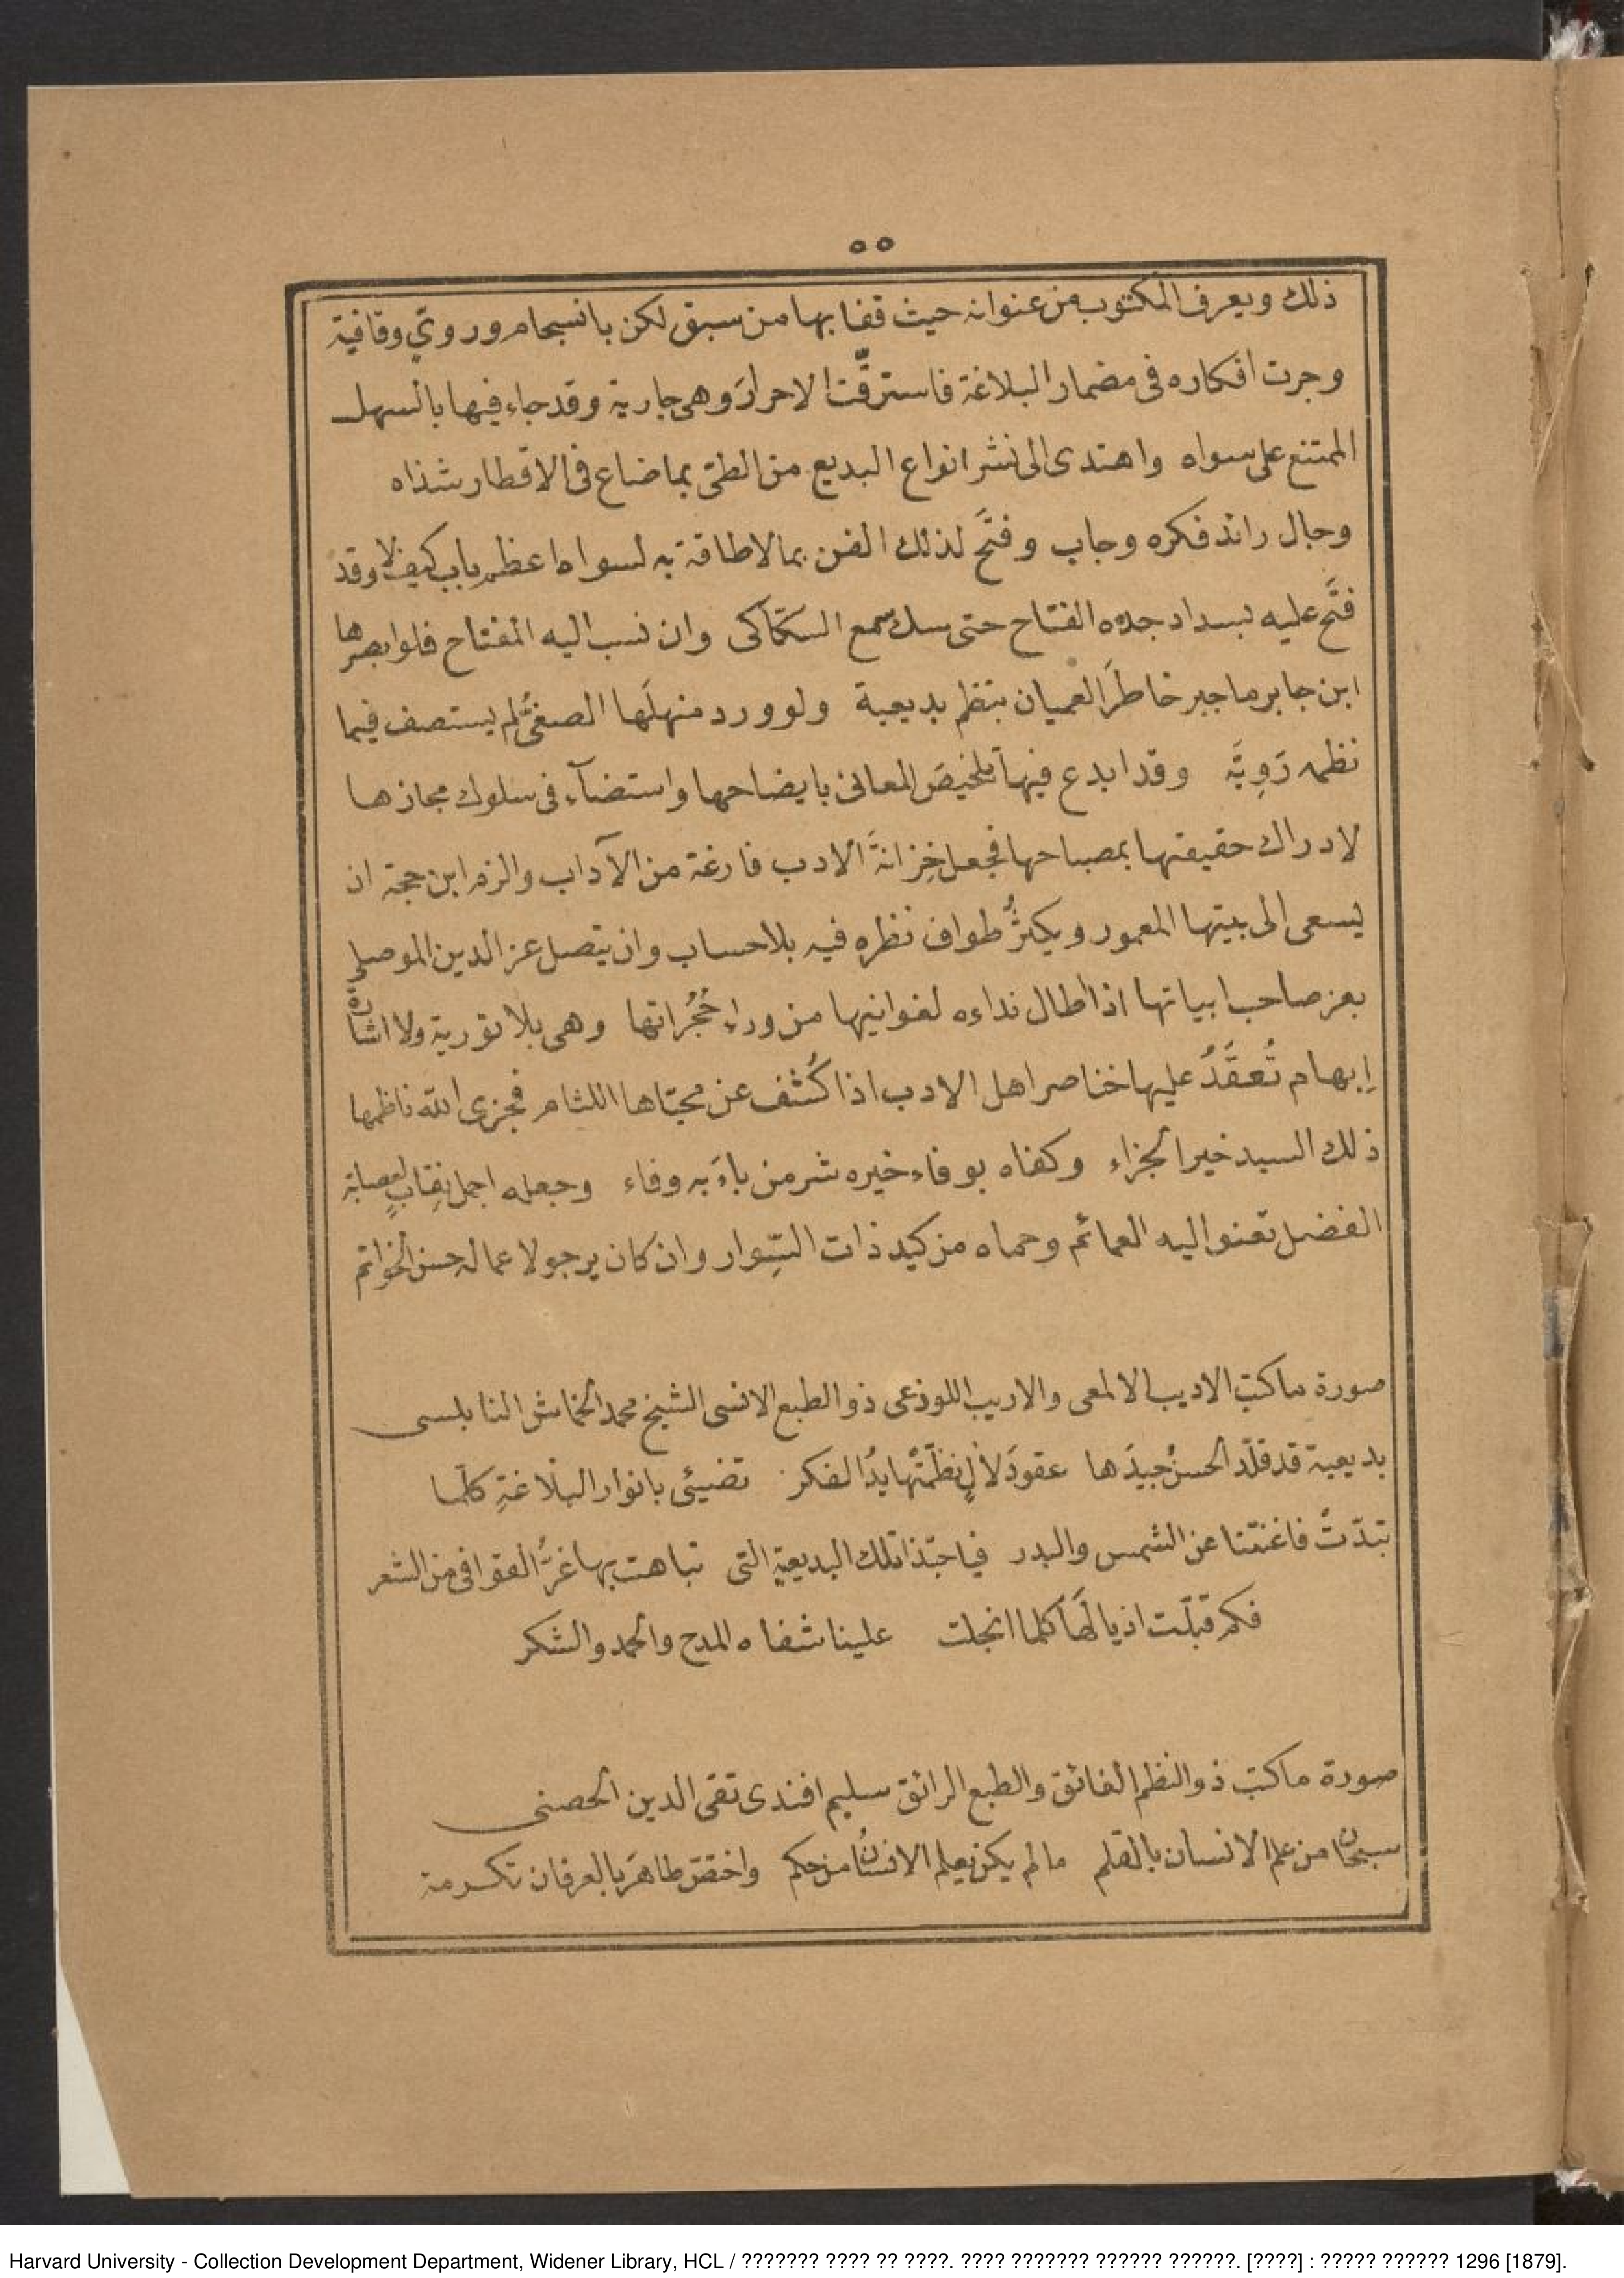 ٥٥
ذلك ويعرف المكتوب من عنوانه حيث قفا بها من سبق لكن بانسجام ور ورويّ وقافية
وجرت افكاره فى مضمار البلاغة فاسترقّت الاحرارَ وهى جارية وقد جاء فيها بالسهل
الممتنع على سواه واهتدى الى نشر انواع البديع من الطىّ بما ضاع فى الاقطار شذاه
وجال رائد فكره وجاب وفتَح لذلك الفن بما لا طاقة به لسواه اعظم باب كيف لا وقد
فتَح عليه بسداد جده الفتاح حتى سك سمع السكّاكى وان نسب اليه المفتاح فلو ابصرها
ابن جابر ما جبر خاطرَ العميان بنظم بديعية ولو ورد منهلَها الصفىُّ لم يستصف فيما
نظمه رَوِيَّة وقد ابدع فيها تلخيصَ المعانى بايضاحها واستضآء فى سلوك مجازها
لادراك حقيقتها بمصباحها فجعل خِزانةَ الادب فارغة من الآداب والزم ابن حجة ان
يسعى الى بيتها المعمور ويكثرُ طواف نظره فيه بلا حساب وان يتصل عز الدين الموصلى
بعز صاحب ابياتها اذا طال نداءه لغوانيها من وراء حُجُراتها وهى بلا تورية ولا اشارة
إبهام تُعقَدُ عليها خناصر اهل الادب اذا كُشف عن محيّاها اللثام فجزى الله ناظمها
ذلك السيد خير الجزاء وكفاه بوفاء خيره شر من باءَ به وفاء وجعله اجمل نِقابٍ لعصابة
الفضل تعنو اليه العمائم وحماه من كيد ذات السِّوار وان كان يرجو لاعماله حسن الخواتم
صورة ما كتب الاديب الالمعى والاريب اللوذعى ذو الطبع الانسى الشيخ محمد الخماش النابلسى
بديعية قد قلّد الحسنُ جيدَها عقودَ لآلٍ نظّمتْها يدُ الفكر تضيئى بانوار البلاغةِ كلّما
تبدّتْ فاغنتنا عن الشمس والبدر فيا حبّذا تلك البديعية التى تباهت بها غرُّ القوافى من الشعر
فكم قبّلت اذيالَها كلما انجلت علينا شفاه المدح والحمد والشكر
صورة ما كتب ذو النظم الفائق والطبع الرائق سليم افندى تقى الدين الحصنى
سبحان من علم الانسان بالقلم ما لم يكن يعلم الانسانُ من حكم واختصّ طاهرَ بالعرفان تكرمة
Harvard University - Collection Development Department, Widener Library, HCL / ??????? ???? ?? ????. ???? ??????? ?????? ??????. [????] : ????? ?????? 1296 [1879].